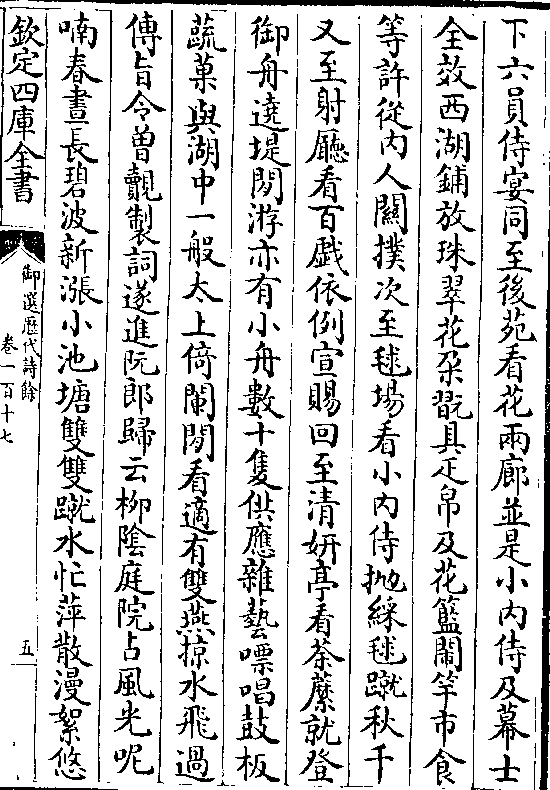 下六員侍宴同至後苑看花兩廊並是小内侍及幕士
全效西湖鋪放珠翠花朵翫具疋帛及花籃鬧竿市食
等許從内人關撲次至毬場看小内侍抛綵毬蹴秋千
又至射廳看百戯依例宣賜回至清妍亭看荼蘼就登
御舟遶堤閒游亦有小舟數十隻供應雜藝嘌唱鼓板
蔬菓與湖中一般太上倚闌閒看適有雙燕掠水飛過
傳旨令曽覿製詞遂進阮郎歸云柳陰庭院占風光呢
喃春晝長碧波新漲小池塘雙雙蹴水忙萍散漫絮悠
欽定四庫全書
御選歴代詩餘
卷一百十七
五